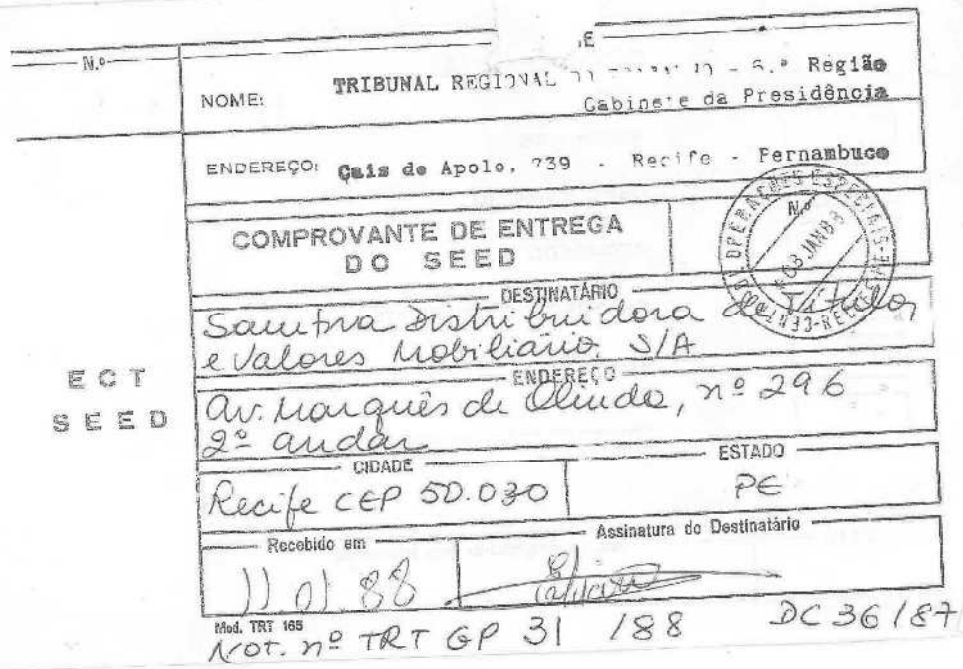 N.º
NOME: TRIBUNAL REGIONAL - 6.ª Região
Gabinete da Presidência
ENDEREÇO: Cais do Apolo, 739 - Recife - Pernambuco
COMPROVANTE DE ENTREGA
DO SEED
N.º
OPERAÇÕES ESPECIAIS
08 JAN 88
DESTINATÁRIO
Distribuidora de Títulos
e Valores Mobiliário. S/A
ECT
SEED
ENDEREÇO
Av. Marquês de Olinda, nº 296
2º andar
CIDADE
ESTADO
Recife CEP 50.030
PE
Recebido em
Assinatura do Destinatário
11.01.88
Mod. TRT 165
NOT. nº TRT GP 31 /88 DC 36/87